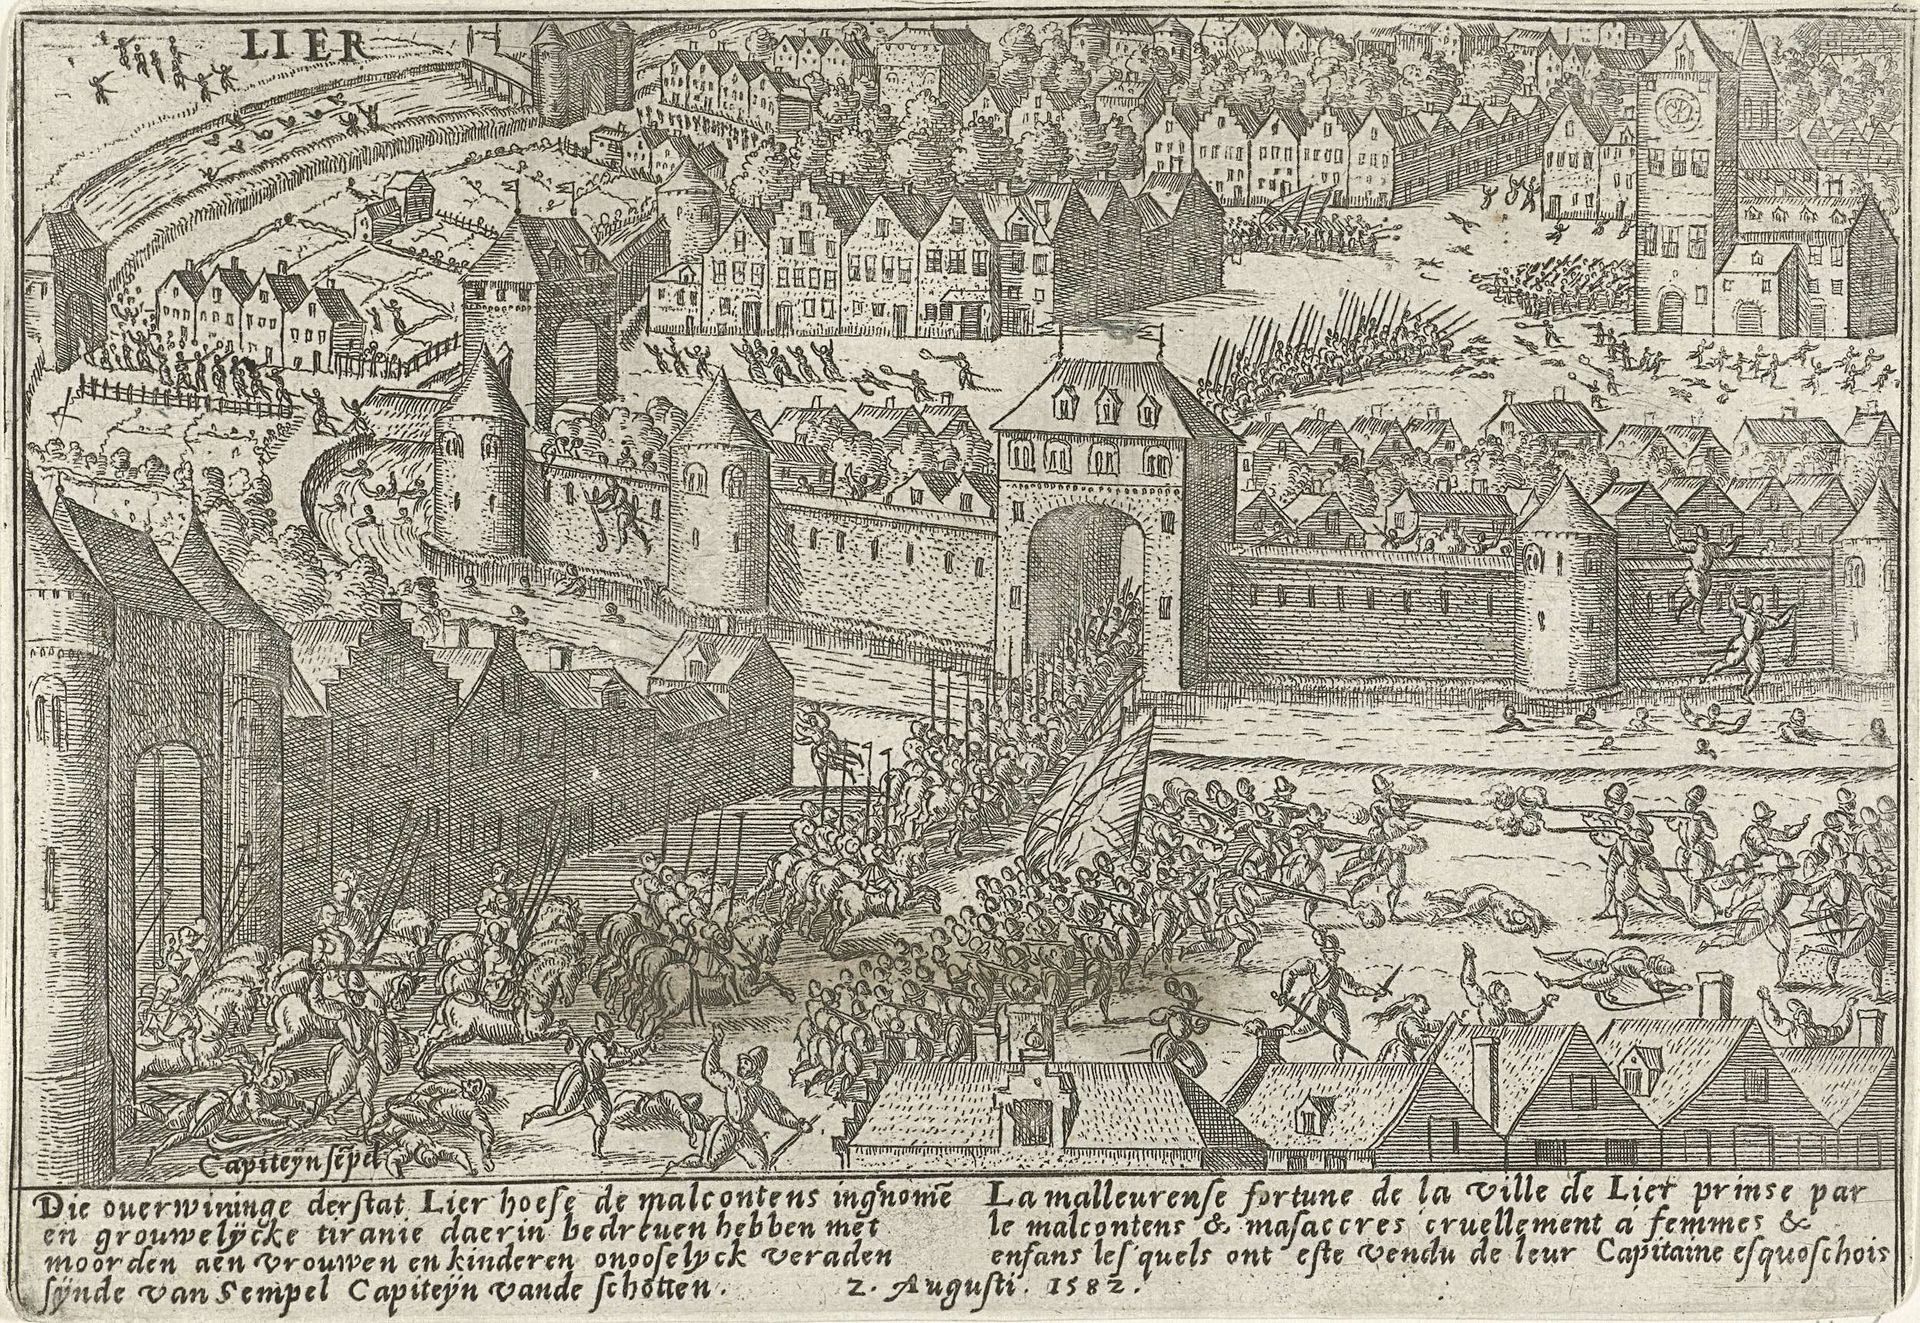 LIER
Capiteÿn sēpel
Die ouerwininge derstat Lier hoese de malcontens ingnomē
en grouwelÿcke tiranie daerin bedreuen hebben met
moorden aen vrouwen en kinderen onooselyck veraden
sÿnde van Sempel Capiteÿn vande schotten.
La malleurense fortune de la ville de Lier prinse par
le malcontens & masaccres cruellement a femmes &
enfans les'quels ont este vendu de leur Capitaine esquoschois
2. Augusti. 1582.